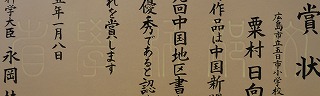 賞状
広島市立五日市小学校
粟村日向
作品は中国新
回中国地区書
優秀であると認
れを賞します
五年一月八日
科学大臣 永岡桂